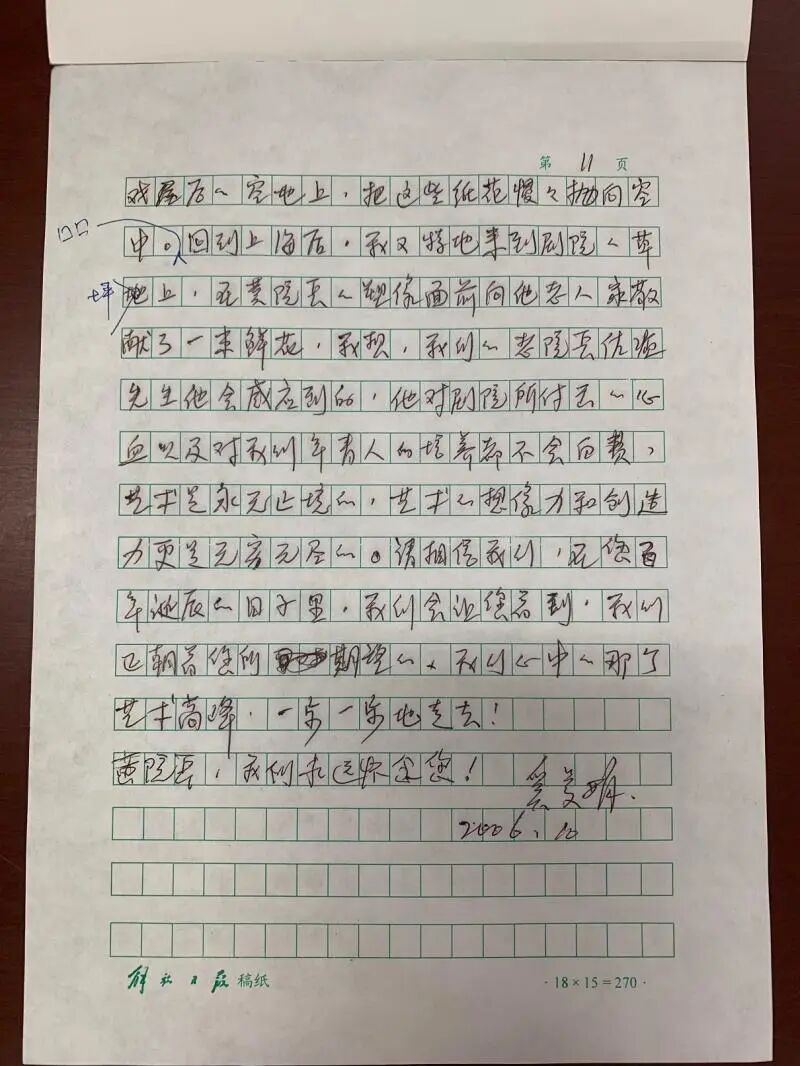 第 11 页
戏屋后的空地上，把这些纸花慢々抛向空
中。回到上海后，我又特地来到剧院的草
坪
地上，在黄院长的塑像面前向他老人家敬
献了一束鲜花，我想，我们的老院长佐临
先生他会感应到的，他对剧院所付出的心
血以及对我们年青人的培养都不会白费，
艺术是永无止境的，艺术的想像力和创造
力更是无穷无尽的。请相信我们，在您百
年诞辰的日子里，我们会让您看到，我们
正朝着您所期望的、我们心中的那个
艺术高峰，一步一步地走去！
黄院长，我们永远怀念您！
2006.10
解放日报 稿纸
·18×15=270·